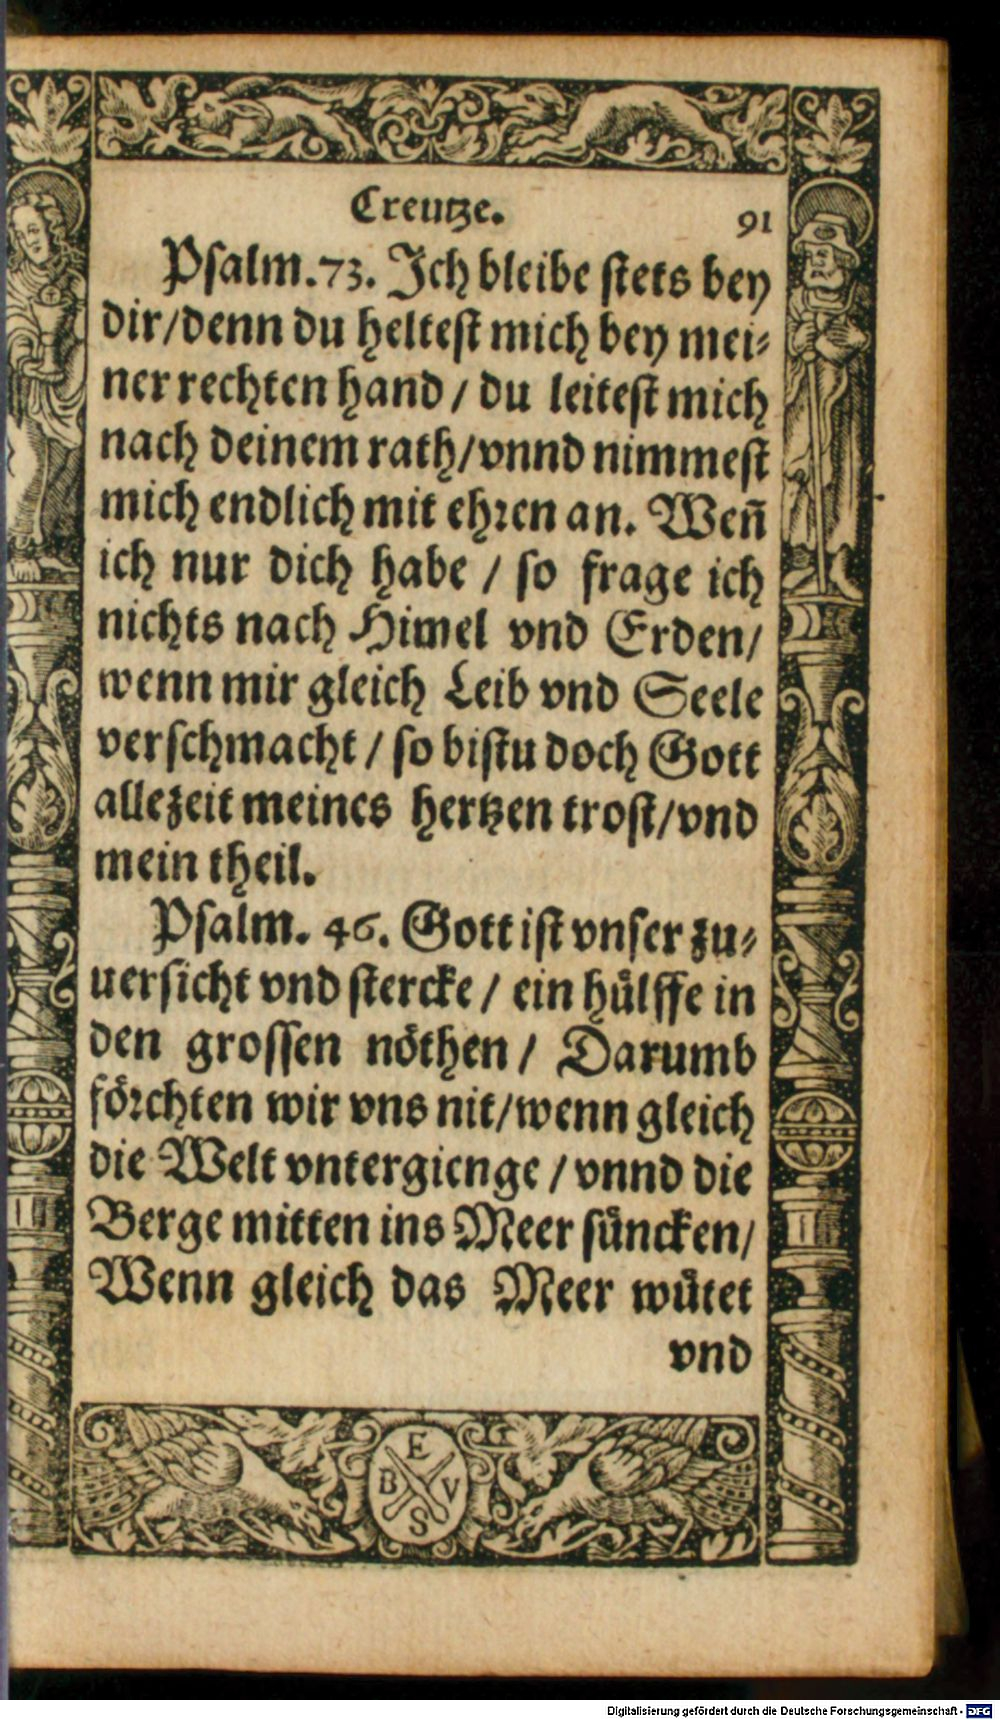 Creutze.
91
Psalm. 73. Ich bleibe stets bey
dir/denn du heltest mich bey mei⸗
ner rechten hand / du leitest mich
nach deinem rath/vnnd nimmest
mich endlich mit ehren an. Weñ
ich nur dich habe / so frage ich
nichts nach Himel vnd Erden/
wenn mir gleich Leib vnd Seele
verschmacht / so bistu doch Gott
allezeit meines hertzen trost/vnd
mein theil.
Psalm. 46. Gott ist vnser zu⸗
uersicht vnd stercke / ein hülffe in
den grossen nöthen / Darumb
förchten wir vns nit/wenn gleich
die Welt vntergienge / vnnd die
Berge mitten ins Meer süncken/
Wenn gleich das Meer wütet
vnd
E
B V
S
Digitalisierung gefördert durch die Deutsche Forschungsgemeinschaft - DFG